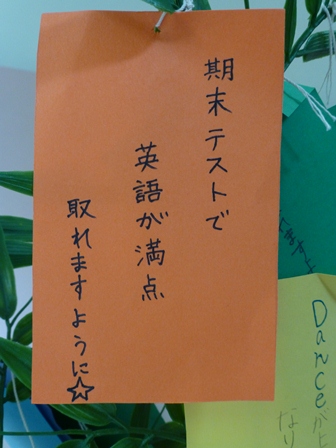 期末テストで
英語が満点
取れますように☆
Danceが
なり